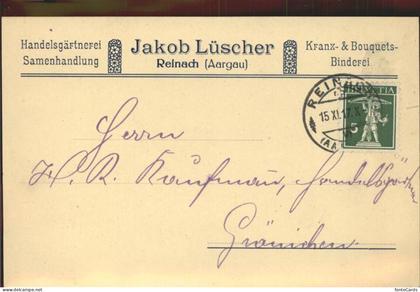 Handelsgärtnerei
Samenhandlung
Jakob Lüscher
Reinach (Aargau)
Kranx- & Bouquets-
Binderei
REINACH
15.XI.12.X
(AA
HELVETIA
5
Herrn
H. R. Kaufman, Handelsgärtner
Gränichen.